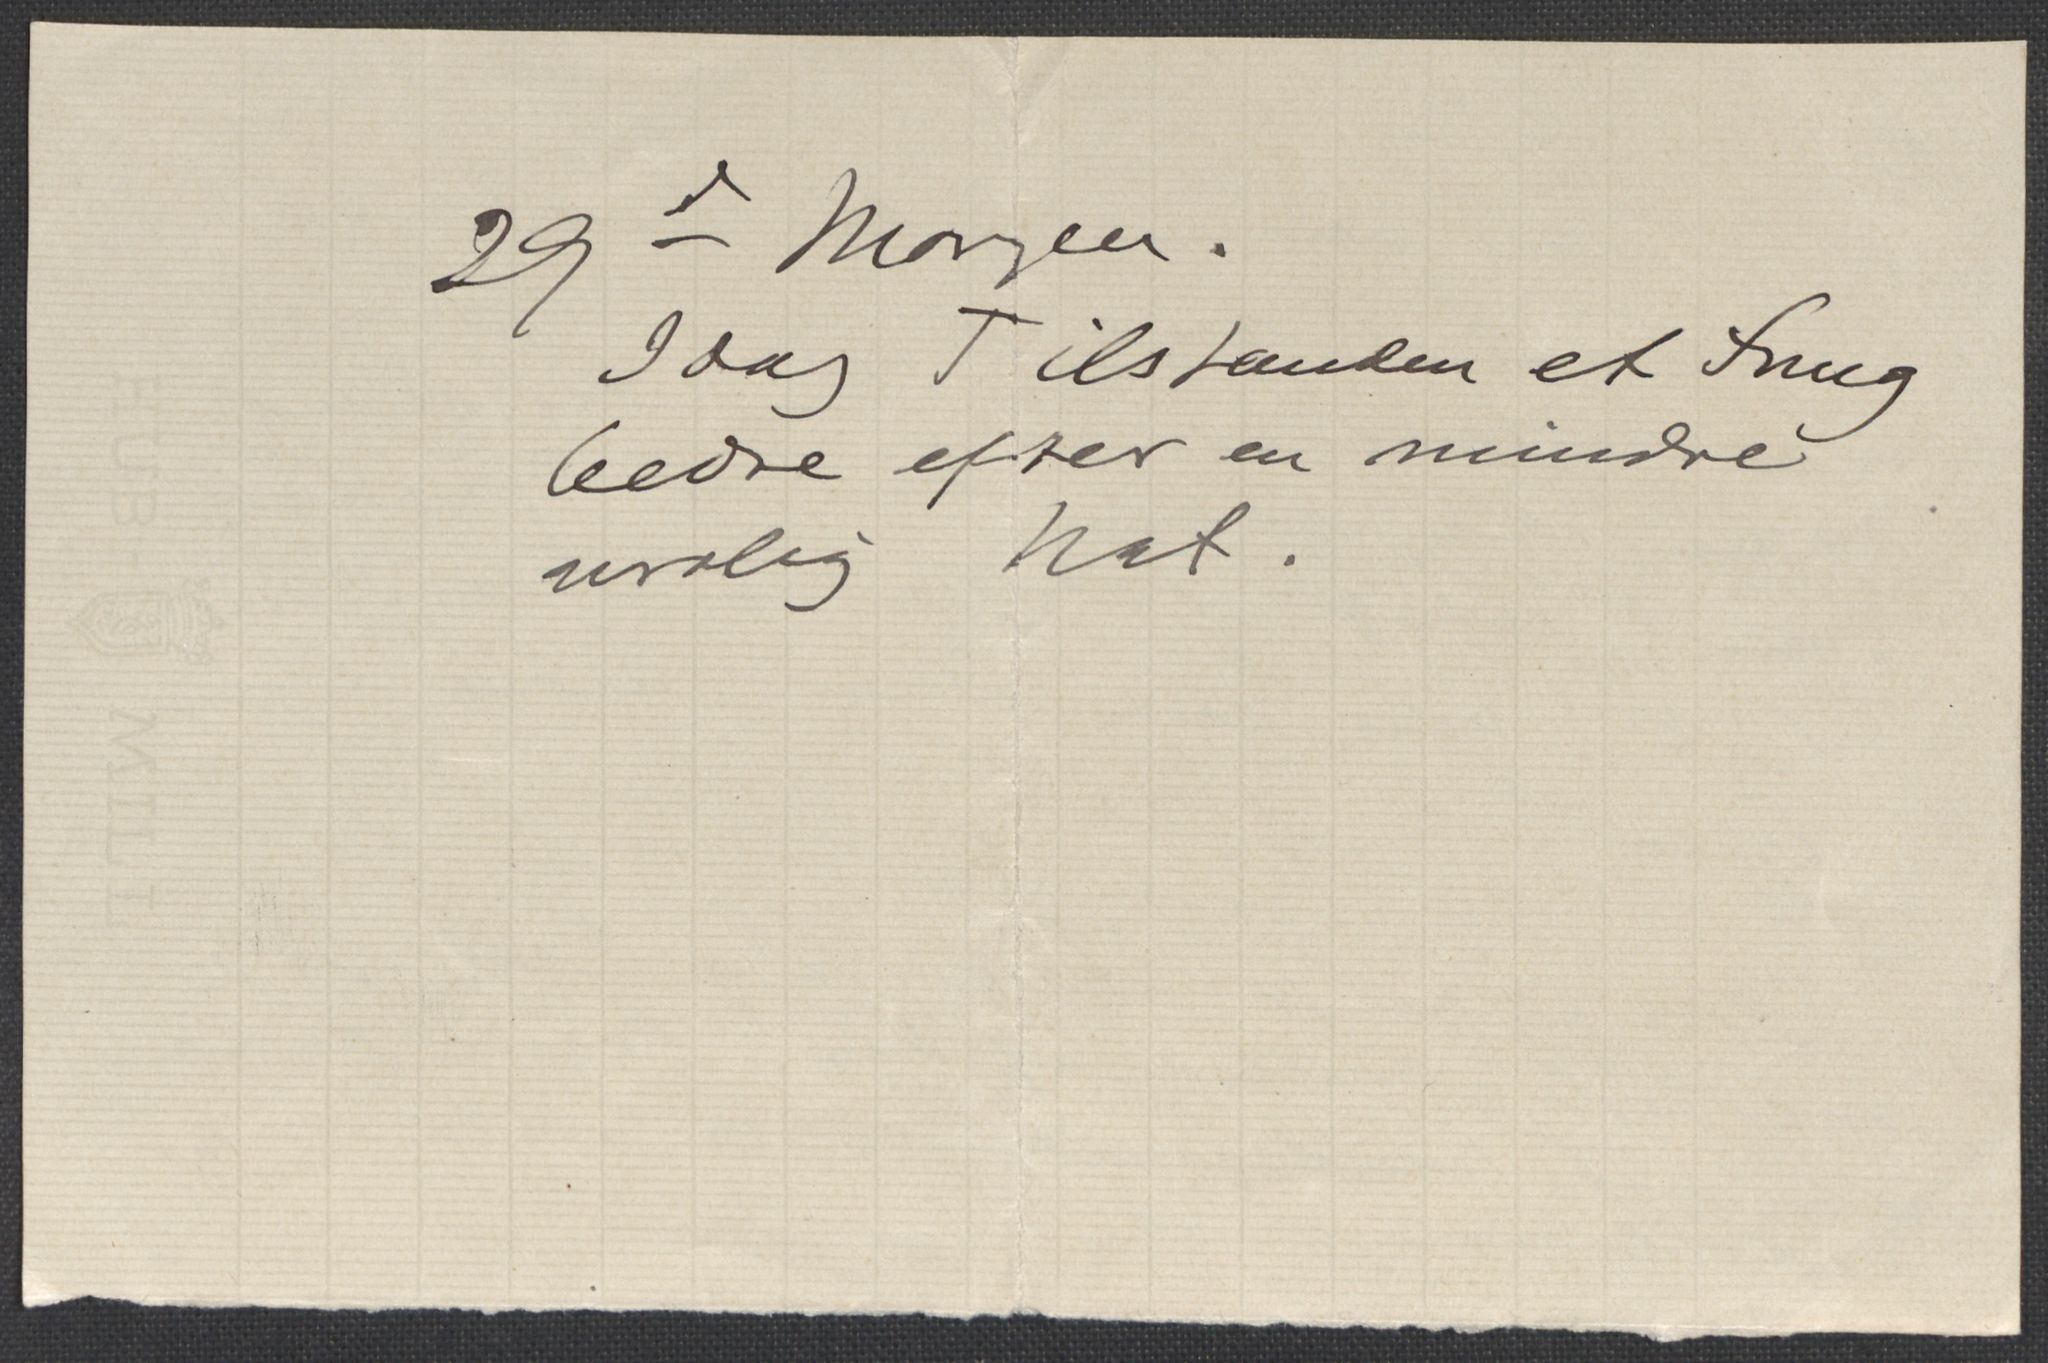 29 d Morgen.
I dag Tilstanden et Snug
bedre efter en mindre
urolig Nat.
HUB
MILL